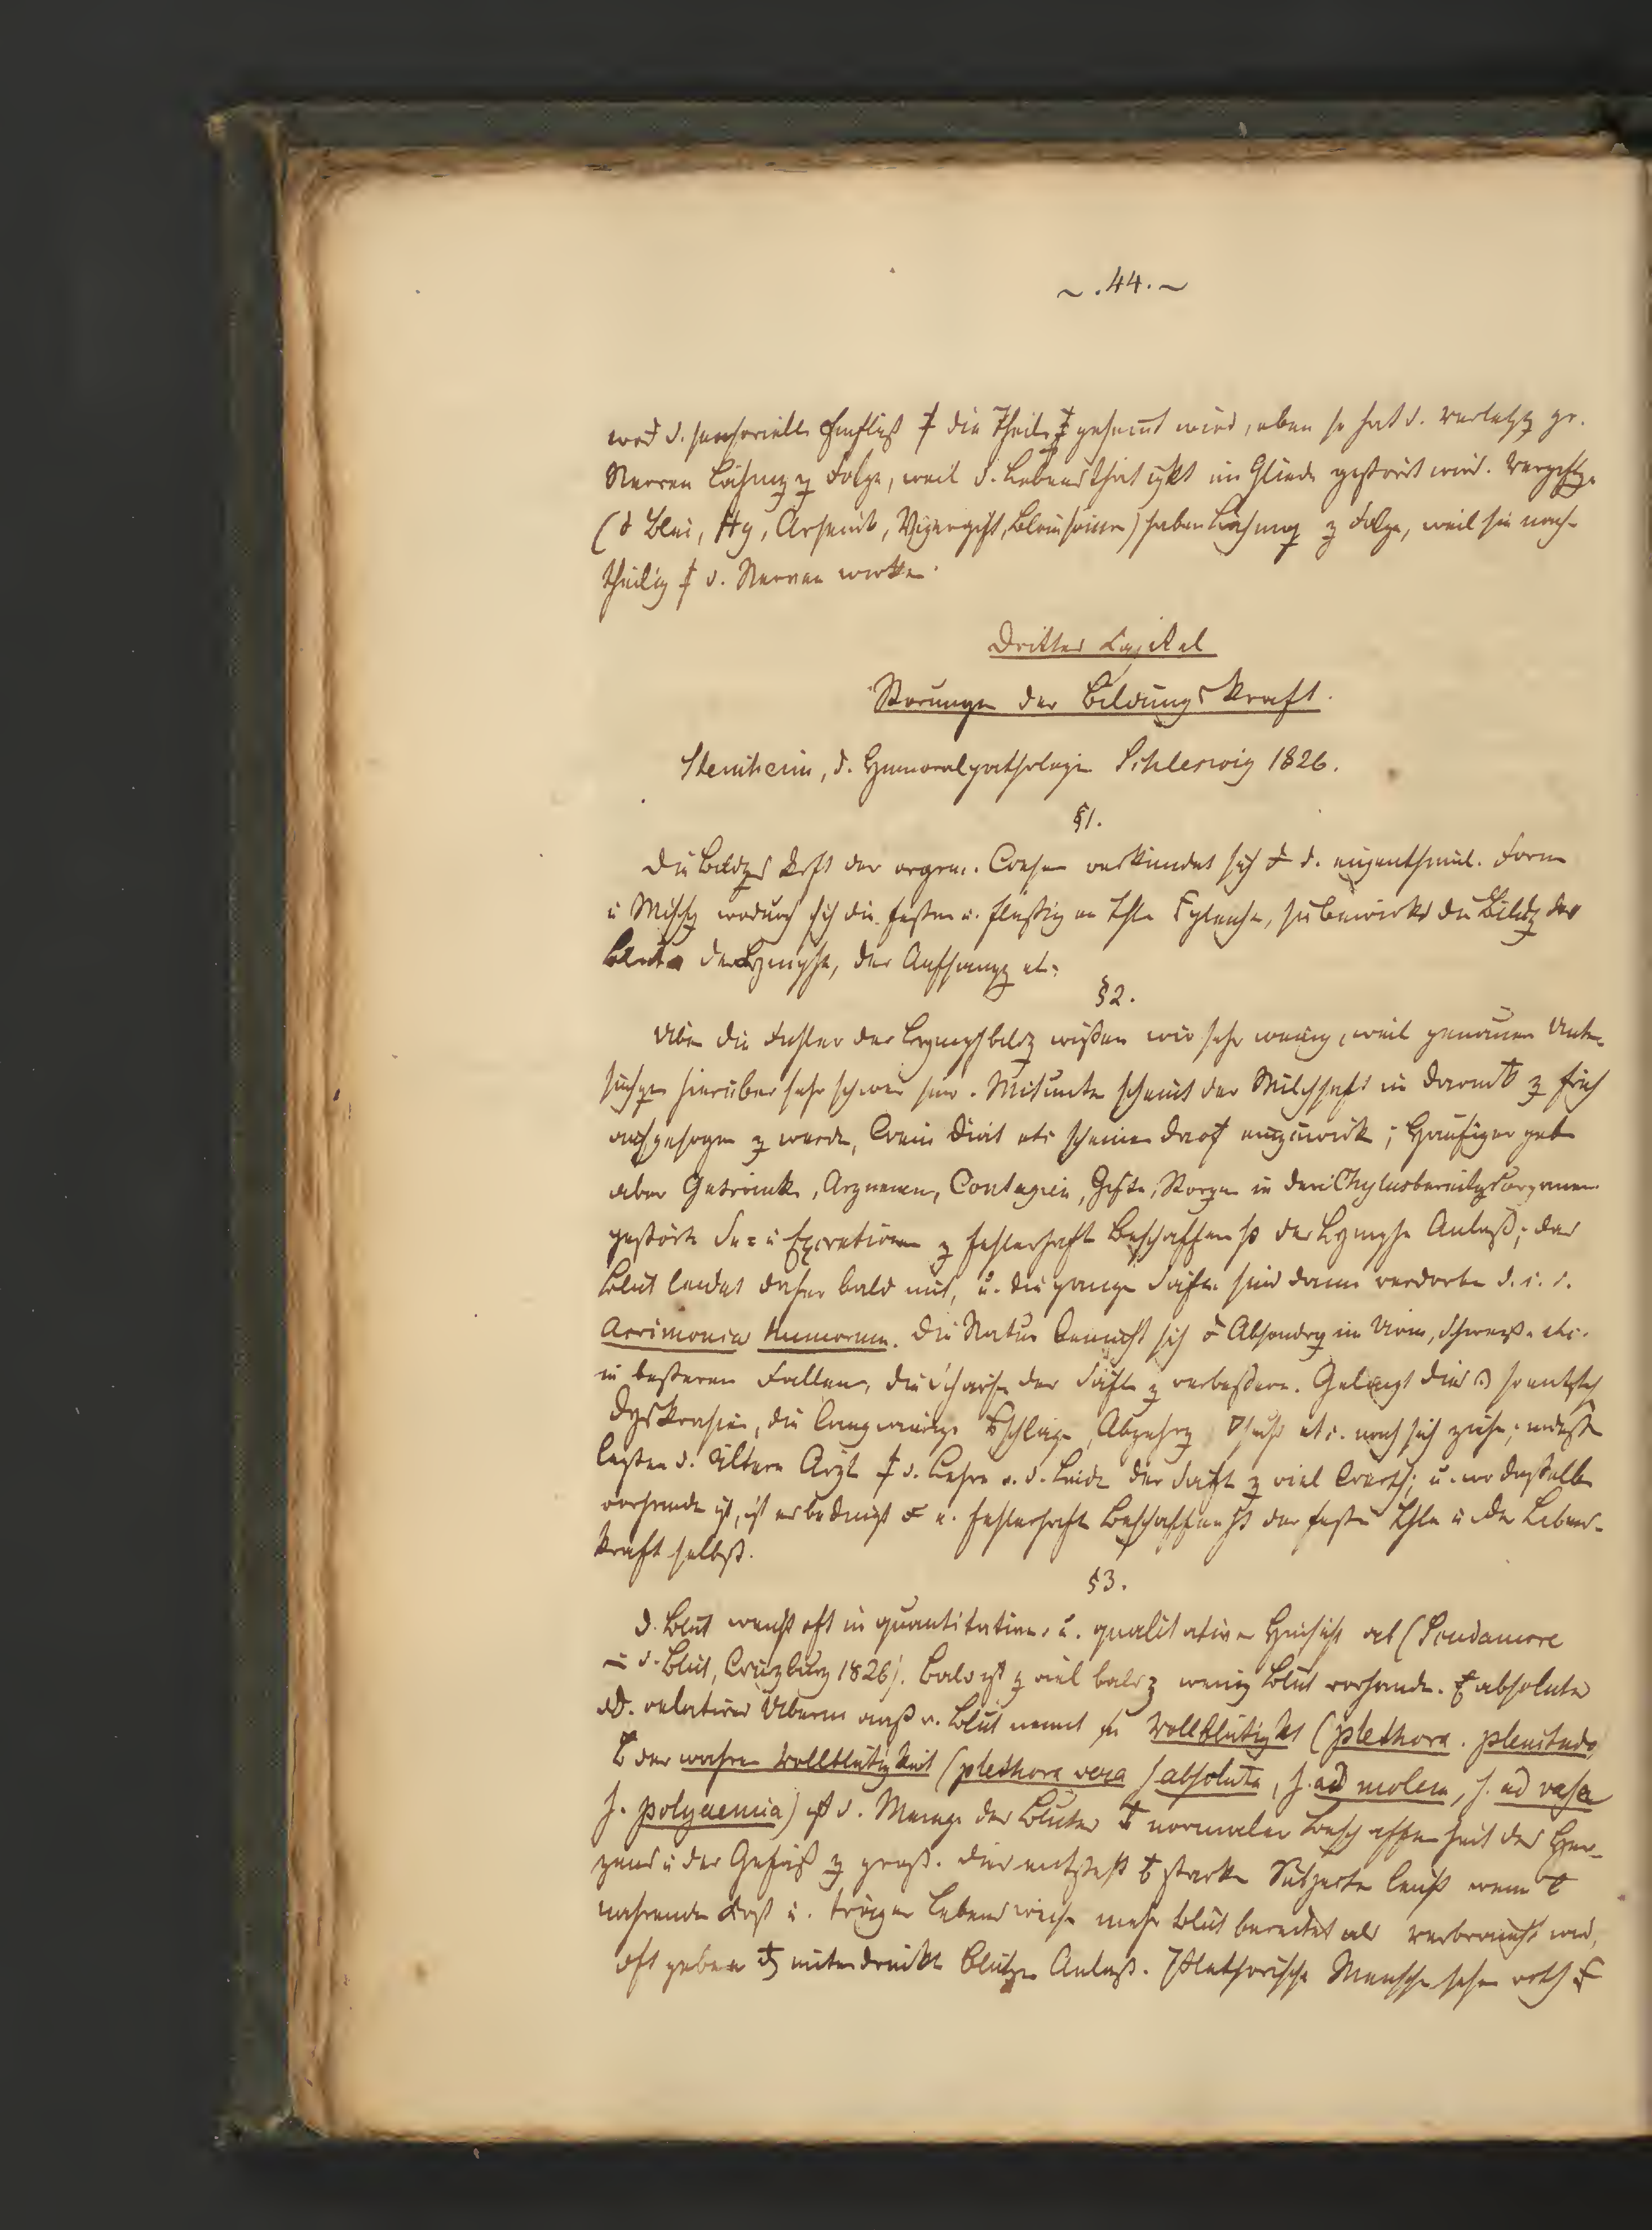 ~ . 44. ~
d. sensorielle Einfluß die Theile gehemt wird, eben so hat d. Verletzg gr.
Nerven Lähmg z Folge, weil d. Lebensthätigkt im Gliede gestört wird. Vergiftg.
(d Blei, Hg, Arsenik, Viperngift, Blausäure) haben Lähmung z Folge, weil sie nach-
theilig d. Nerven wirken.
Drittes Kapitel
Störungen der Bildungskraft.
Steinheim, d. Humoralpathologie Schleswig 1826.
§1.
Die Bildgs Krft der organ. Wesen verkündet sich d. eigenthüml. Form
u Mischg wodurch sich die festen u. flüßigen Thle, sie bewirkt die Bildg des
Blutes der Lymphe, der Aufsaugg etc.
§2.
Über die Fehler der Lymphbildg wißen wir sehr wenig, weil genauere Unter-
suchgen hierüber sehr schwer sind. Mitunter scheint der Milchsaft im Darm z früh
aufgesogen z werden, Diät etc scheinen einzuwirken; Häufiger geben
aber Getränke, Arzneien, Contagien, Gifte, Störgen in den Chylusbereitgsorganen
gestörte Se= u Excretionen z fehlerhaft Beschaffenht der Lymphe Anlaß; das
Blut leidet daher bald mit, u. die ganze Säfte sind dann verdorben d. i. d.
Acrimonia humorum. Die Natur bemüht sich Absondrg im Urin, Schweiß etc.
in beßeren Fällen, die Schärfe der Säfte z verbeßern. Gelingt dies so entsteh
Dyskrasien, die langwierige Abzehrg etc. nach sich ziehn; indeß
legten d. ältere Ärzte d. Lehre v. d. Leide der Säfte z viel Werth; u. wo daßelbe
vorhande ist, ist es bedingt e. fehlerhaft Beschaffenht der feste Thle u der Lebens-
kraft selbst.
§3.
D. Blut weicht oft in quantitativer u. qualitativer Hinsicht ab (Scudamore
d. Blut, Würzburg 1826). Bald ist z viel bald z wenig Blut vorhande. absolutes
od. relatives Übermaaß v. Blut nennt man Vollblütigkt (plethora. plenitudo)
der wahren Vollblütigkeit (plethora vera s absoluta, s. ad molem, s. ad vasa
s. polyaemia) ist d. Menge des Blutes normaler Beschaffenheit des Her-
zens u der Gefäß z groß. Dies entsteht starke Subjecte leicht wenn
nahrende Kost u. träger Lebensweise mehr Blut bereitet als verbraucht wird,
oft geben unterdrückte Blutgen Anlaß. Plethorische Mensche sehen roth